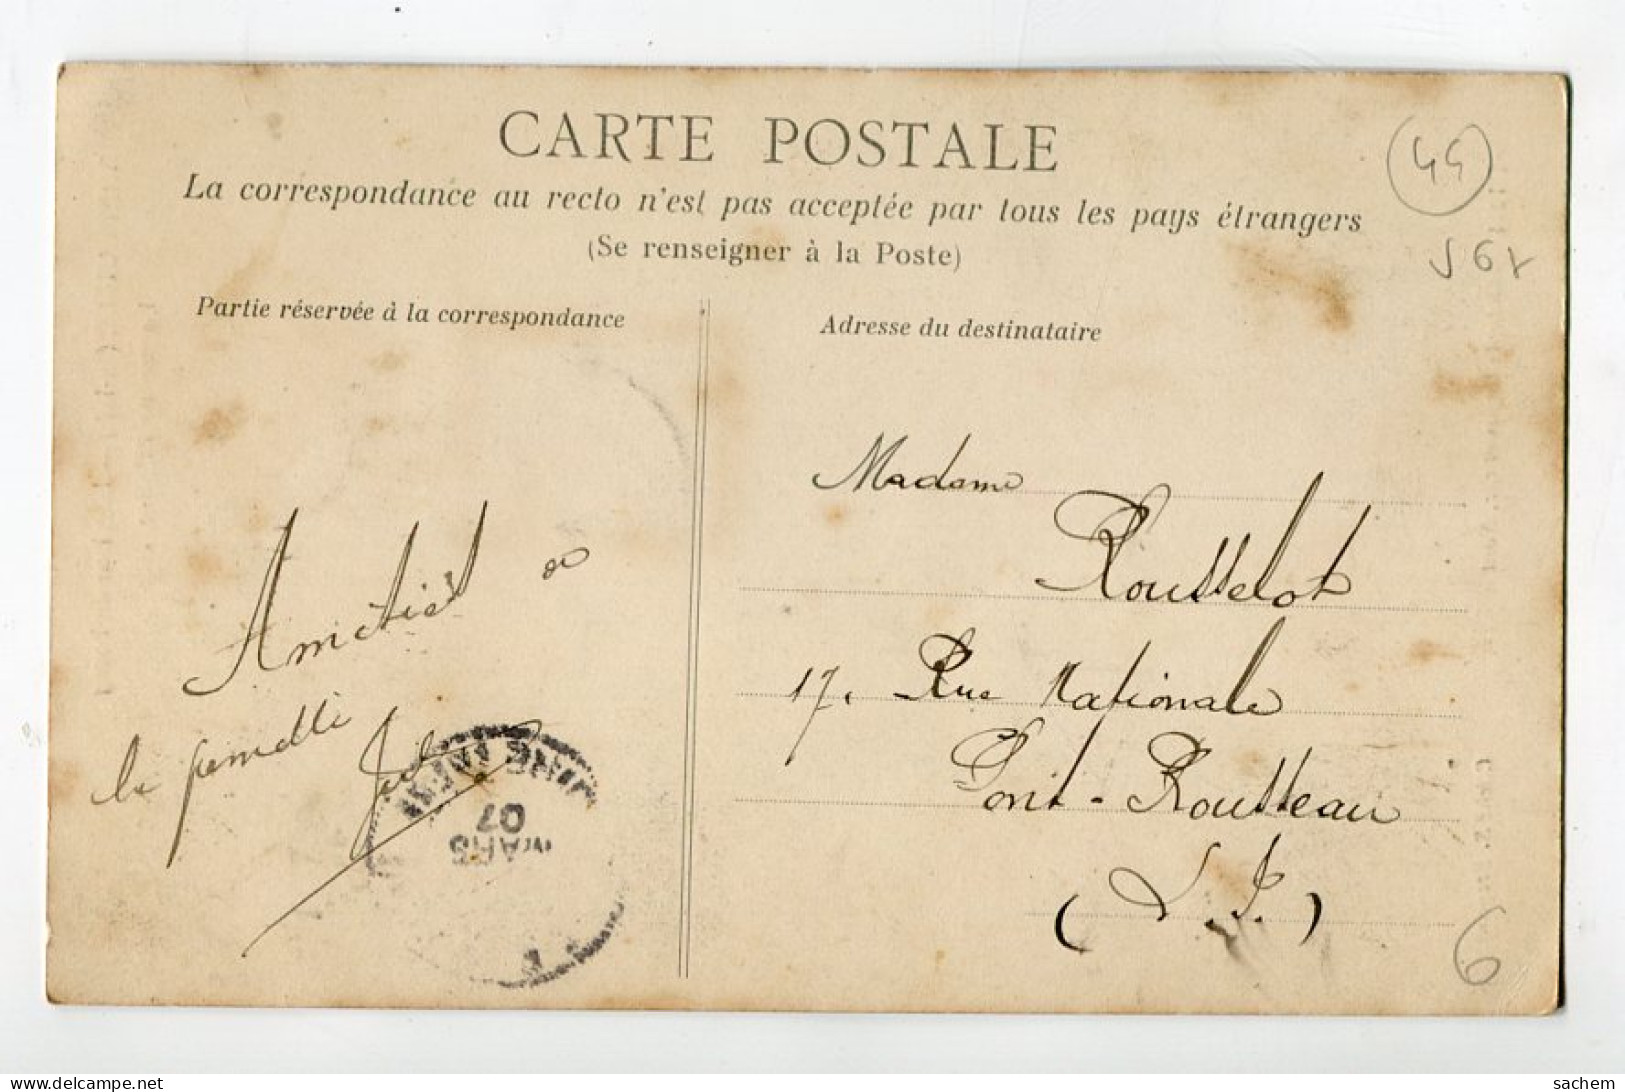 CARTE POSTALE
La correspondance au recto n'est pas acceptée par tous les pays étrangers
(Se renseigner à la Poste)
Partie réservée à la correspondance
Adresse du destinataire
Amitiés
la famille
Madame
Rousselot
17. Rue Nationale
Pont-Rousseau
(L. I.)
MARS
07
6
sachem
delcampe.net